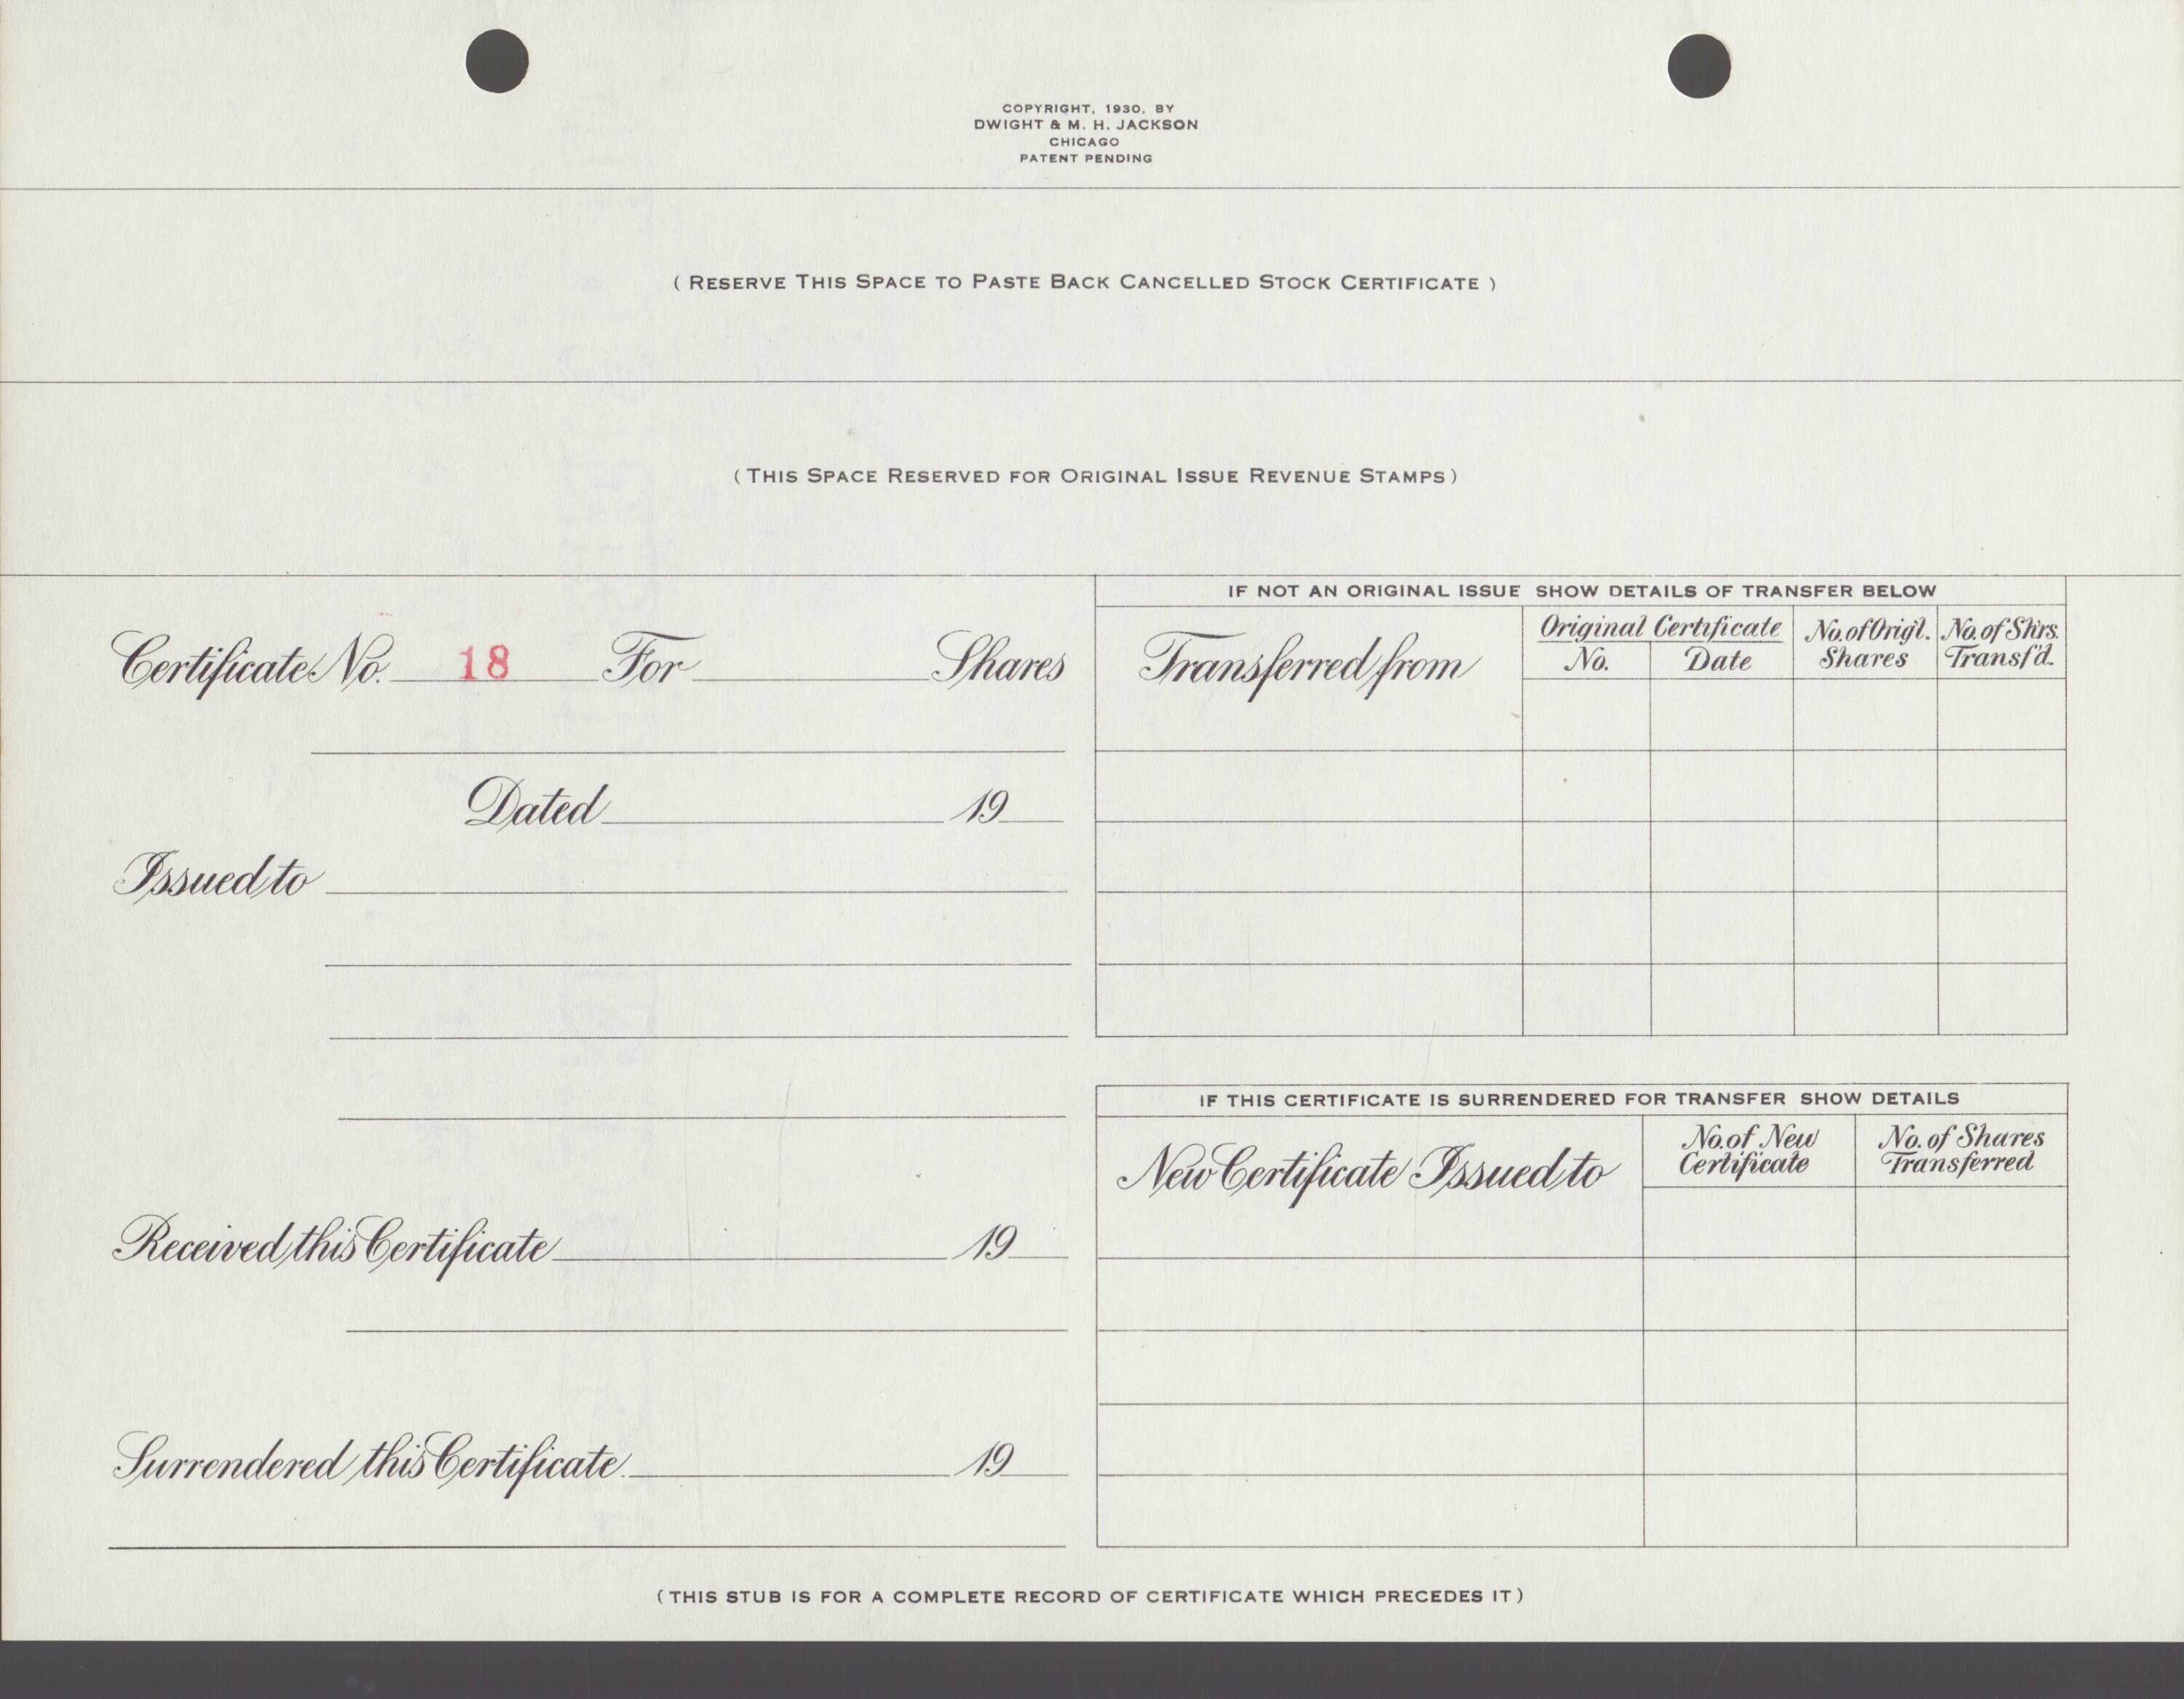 COPYRIGHT, 1930, BY
DWIGHT & M. H. JACKSON
CHICAGO
PATENT PENDING
( RESERVE THIS SPACE TO PASTE BACK CANCELLED STOCK CERTIFICATE )
( THIS SPACE RESERVED FOR ORIGINAL ISSUE REVENUE STAMPS )
Certificate No. 18 For Shares
Dated 19
Issued to
Received this Certificate 19
Surrendered this Certificate 19
IF NOT AN ORIGINAL ISSUE SHOW DETAILS OF TRANSFER BELOW
Transferred from
Original Certificate
No. Date
No. of Origl.
Shares
No. of Shrs.
Transf'd.
IF THIS CERTIFICATE IS SURRENDERED FOR TRANSFER SHOW DETAILS
New Certificate Issued to
No. of New
Certificate
No. of Shares
Transferred
( THIS STUB IS FOR A COMPLETE RECORD OF CERTIFICATE WHICH PRECEDES IT )